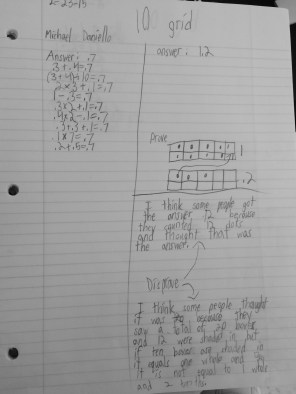 2-23-15
10 grid
Michael
Answer: .7
answer: 1.2
.3+.4=.7
1-.3=.7
.3x2+.1=.7
.3+.3+.1=.7
.1x7=.7
.2+.5=.7
prove
1
.2
I think some people got
the answer 12 because
they counted 12 dots
and thought that was
the answer.
Disprove
I think some people thought
it was because they
saw a total of 20 boxes
and 12 were shaded in but
if ten boxes are shaded in
it equals one whole and
it is not equal to 1 whole
and 2